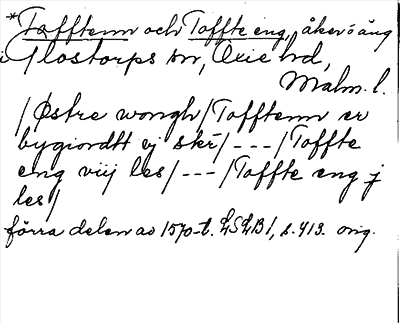 *Tofftenn och Toffte eng, åker o äng
i Glostorps sn, Oxie hd,
Malm. l.
/Østre wongh/Tofftenn er
bygiordtt ej skr/---/Toffte
eng viij les/---/Toffte eng j
les/
förra delen av 1570-t. LSLB1, s. 413. orig.